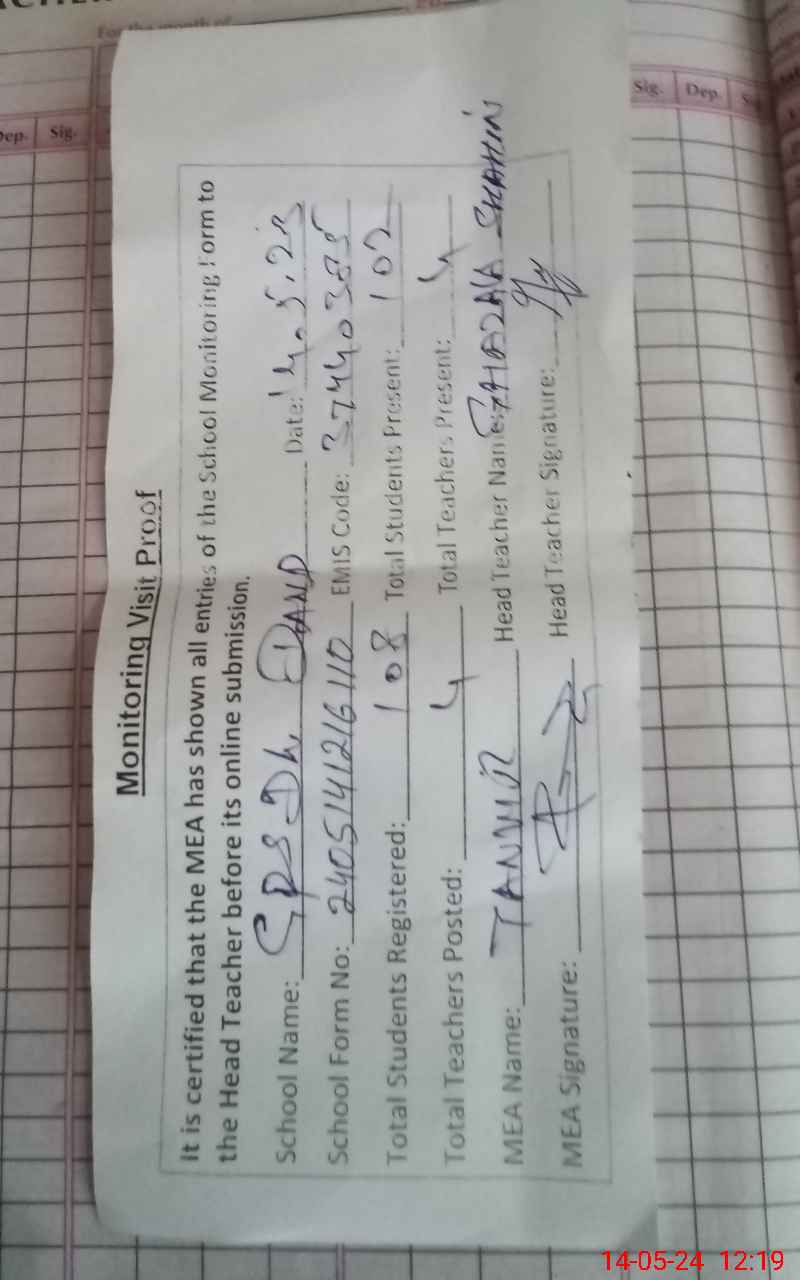 For the month of
Dep. Sig.
Sig. Dep.
Monitoring Visit Proof
It is certified that the MEA has shown all entries of the School Monitoring Form to
the Head Teacher before its online submission.
School Name: GPS DK DAND Date: 14.5.23
School Form No: 2405141216110 EMIS Code: 37440385
Total Students Registered: 108 Total Students Present: 102
Total Teachers Posted: 4 Total Teachers Present: 4
MEA Name: TANVIR Head Teacher Name: SHAHIN
MEA Signature: Head Teacher Signature:
14-05-24 12:19